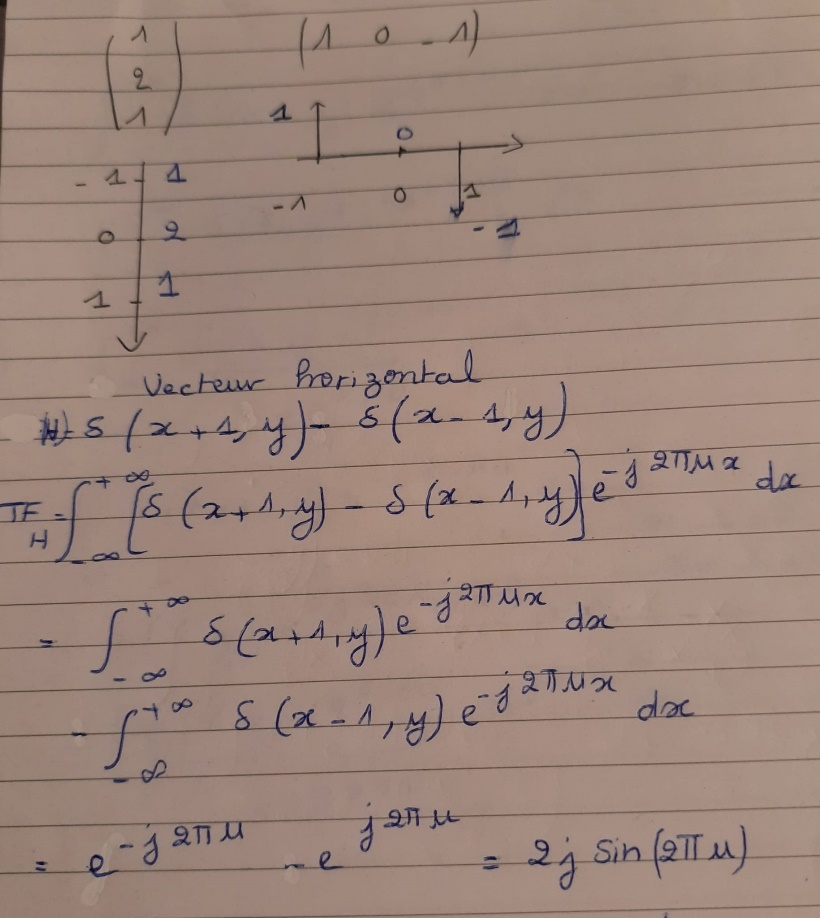 ( 1 2 1 ) (1 0 -1)
1 0
-1 0 1 -1
-1 1
0 2
1 1
Vecteur horizontal
H) δ(x+1,y) - δ(x-1,y)
TF_H = ∫_{-∞}^{+∞} [δ(x+1,y) - δ(x-1,y)] e^{-j2πμx} dx
= ∫_{-∞}^{+∞} δ(x+1,y) e^{-j2πμx} dx
- ∫_{-∞}^{+∞} δ(x-1,y) e^{-j2πμx} dx
= e^{-j2πμ} - e^{j2πμ} = 2j sin(2πμ)